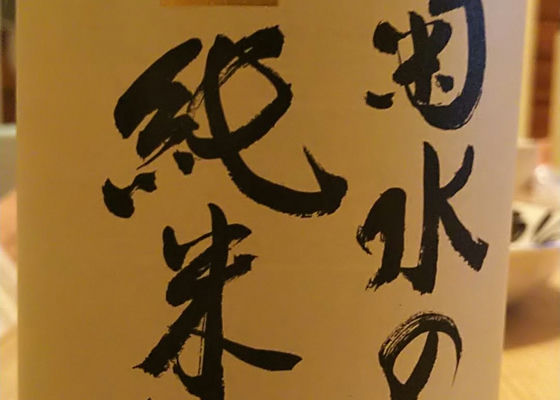 菊水の
純米